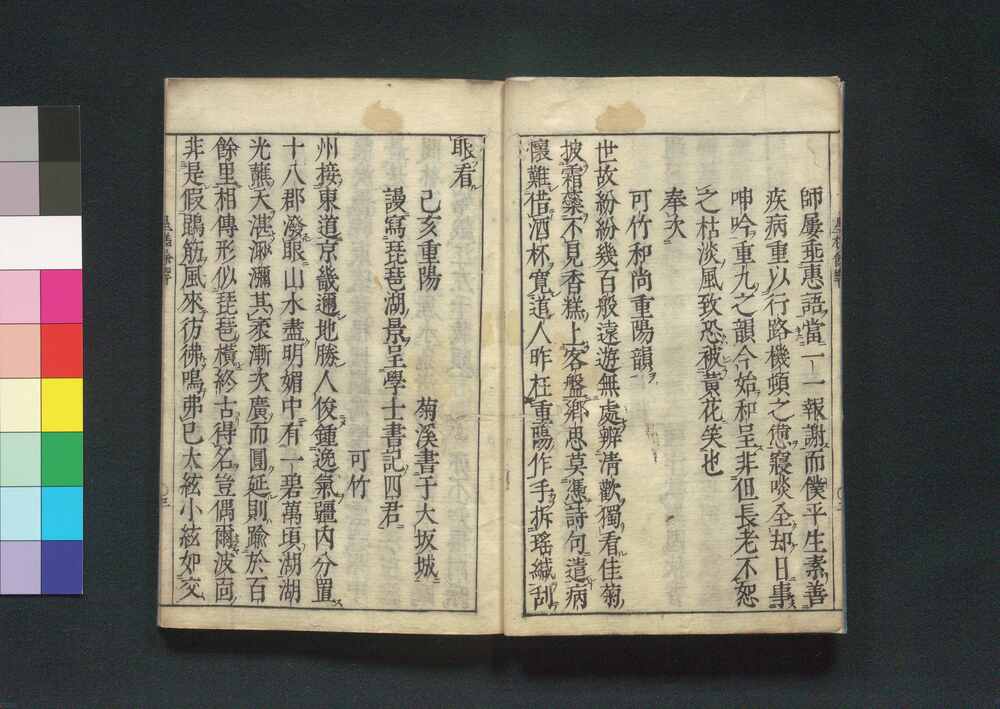 師屢垂惠語當一一報謝而僕平生素善
疾病重以行路機頓之憊寢啖全却日事
呻吟重九之韻今始和呈非但長老不恕
之枯淡風致恐被黃花笑也
奉次
可竹和尚重陽韻
世故紛紛幾百般遠遊無處辨清歡獨看佳菊
披霜藥不見香糕上客盤鄉思莫憑詩句遣病
懷難借酒杯寬道人昨枉重陽作手拆瑤緘刮
眼看
己亥重陽　菊溪書于大坂城
謾寫琵琶湖景呈學士書記四君
可竹
州接東道京畿邇地勝人俊鍾逸氣疆内分置
十八郡潑眼山水盡明媚中有一碧萬頃湖湖
光蘸天湛淵瀰其衺漸次廣而圓延則踰於百
餘里相傳形似琵琶橫終古得名豈偶爾波面
非是假鵾筋風來彷彿鳴弗已大絃小絃如交